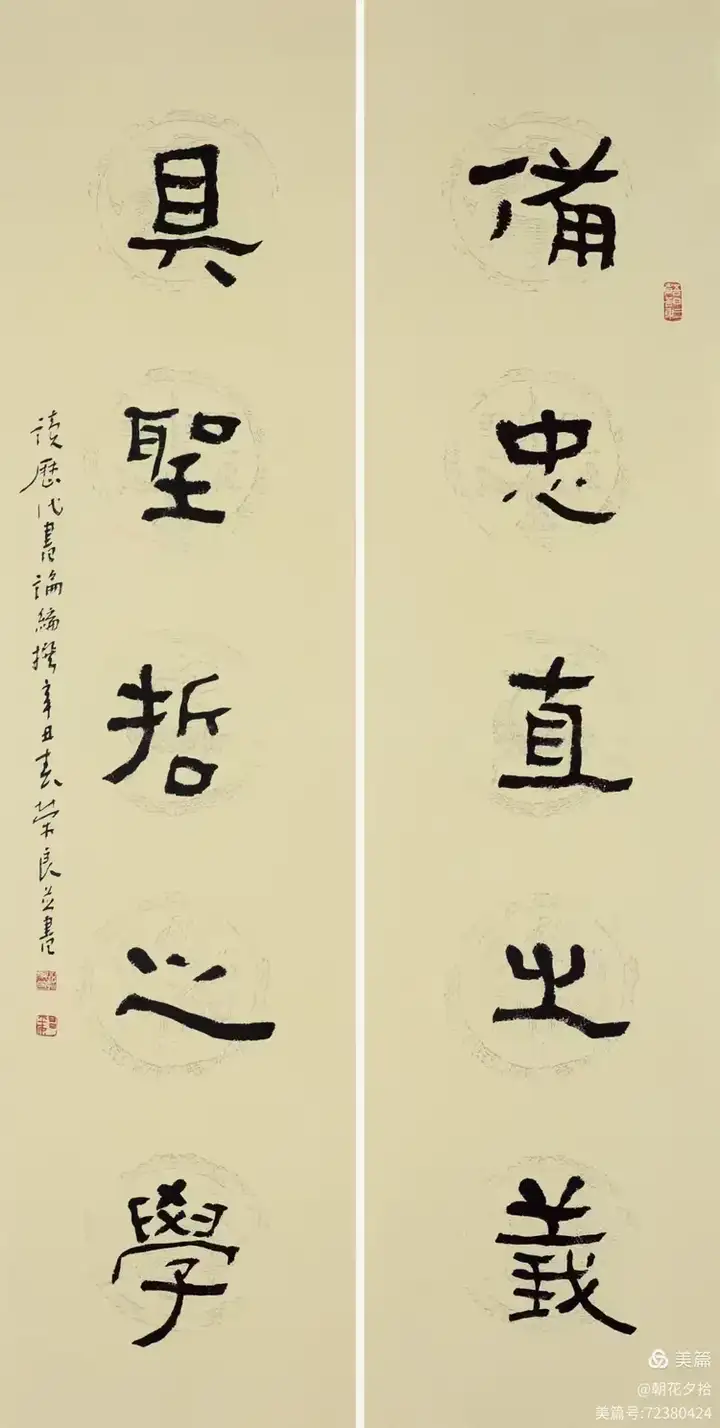 備忠直之義
具聖哲之學
讀歷代書論編撰辛丑春榮良並書
美篇
@朝花夕拾
美篇号:72380424